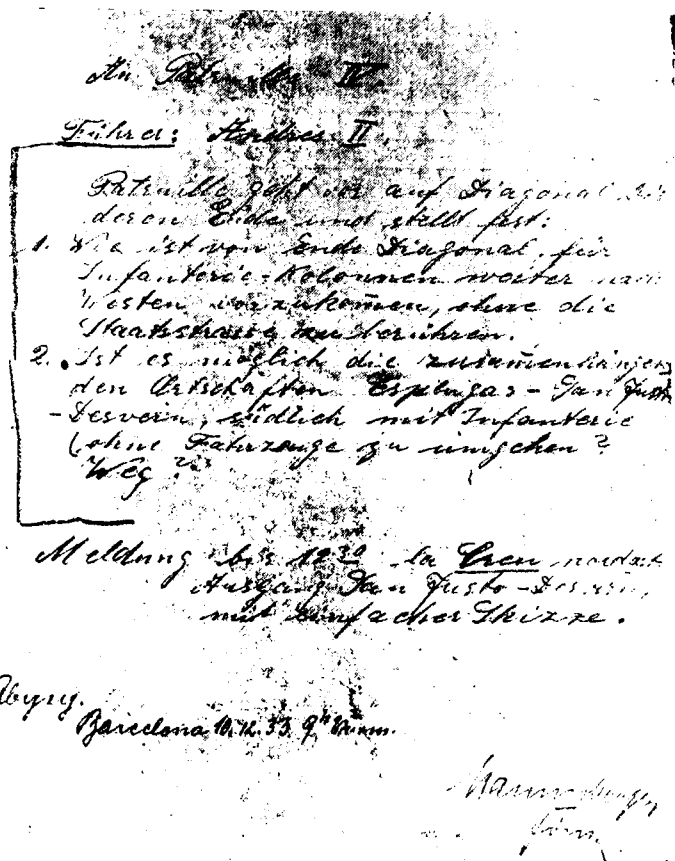 An Patrouille IV.
Führer: Andres II
Patrouille geht vor auf Diagonal bis
deren Ende und stellt fest:
1. Wie ist von Ende Diagonal, für
Infanterie-Kolonnen weiter nach
Westen vorzukom̄en, ohne die
Staatsstrasse zu berühren.
2. Ist es möglich die zusam̄enhängen
den Ortschaften Esplugas - San Justo
- Desvern, südlich mit Infanterie
(ohne Fahrzeuge zu umgehen?
Weg?
Meldung bis 12³⁰ La Creu
Ausgang San Justo - Desvern,
mit einfacher Skizze.
Barcelona 10.12.33. 9ʰ